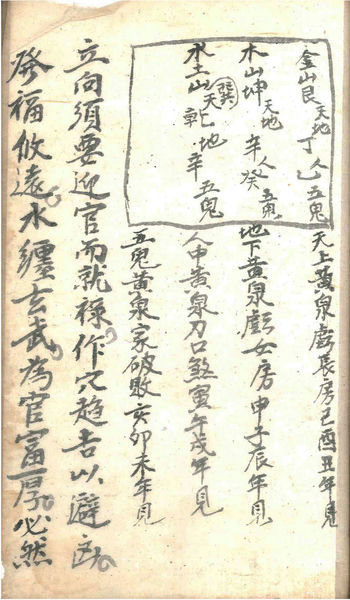 金山艮天地丁人乙五鬼 天上黃泉虧長房巳酉丑年見
木山坤天地辛人癸五鬼 地下黃泉虧女房申子辰年見
水土山巽天乾地辛五鬼 人中黃泉刀口煞寅午戌年見
五鬼黃泉家破敗亥卯未年見
立向須要迎官而就祿作穴趨吉以避凶
發福攸遠水纏玄武為官富厚必然